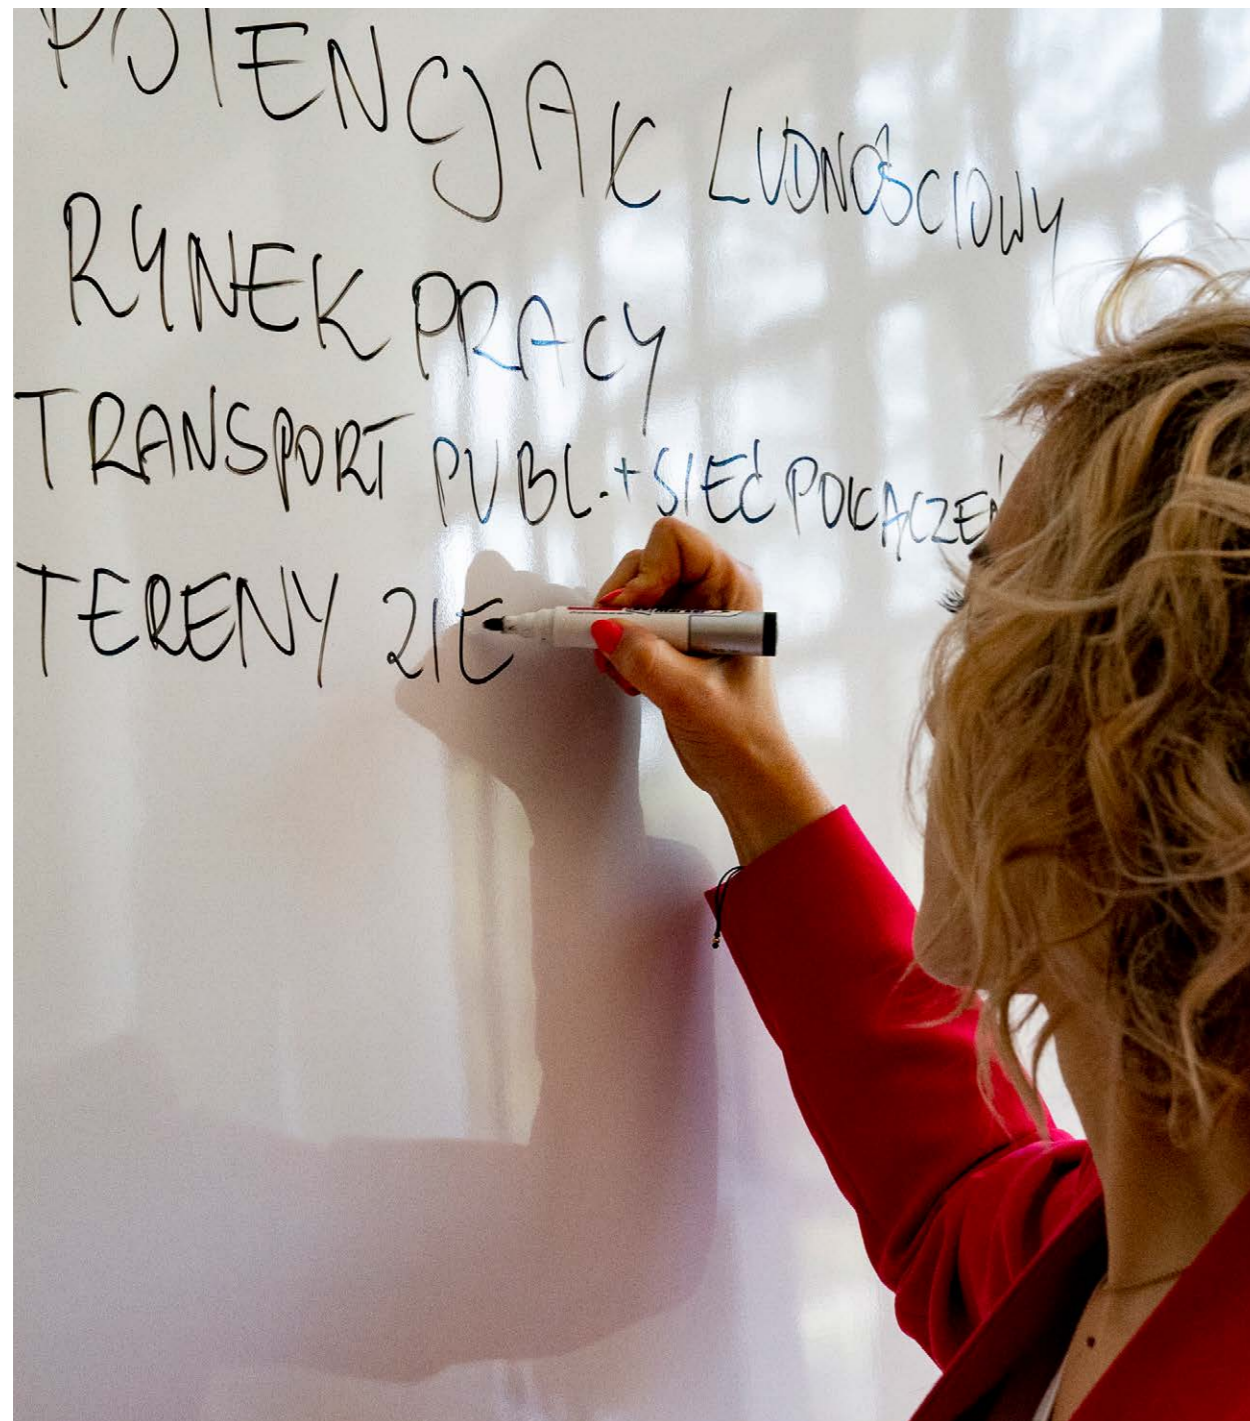 POTENCJAŁ LUDNOŚCIOWY
RYNEK PRACY
TRANSPORT PUBL. + SIEĆ POŁĄCZEŃ
TERENY ZIE